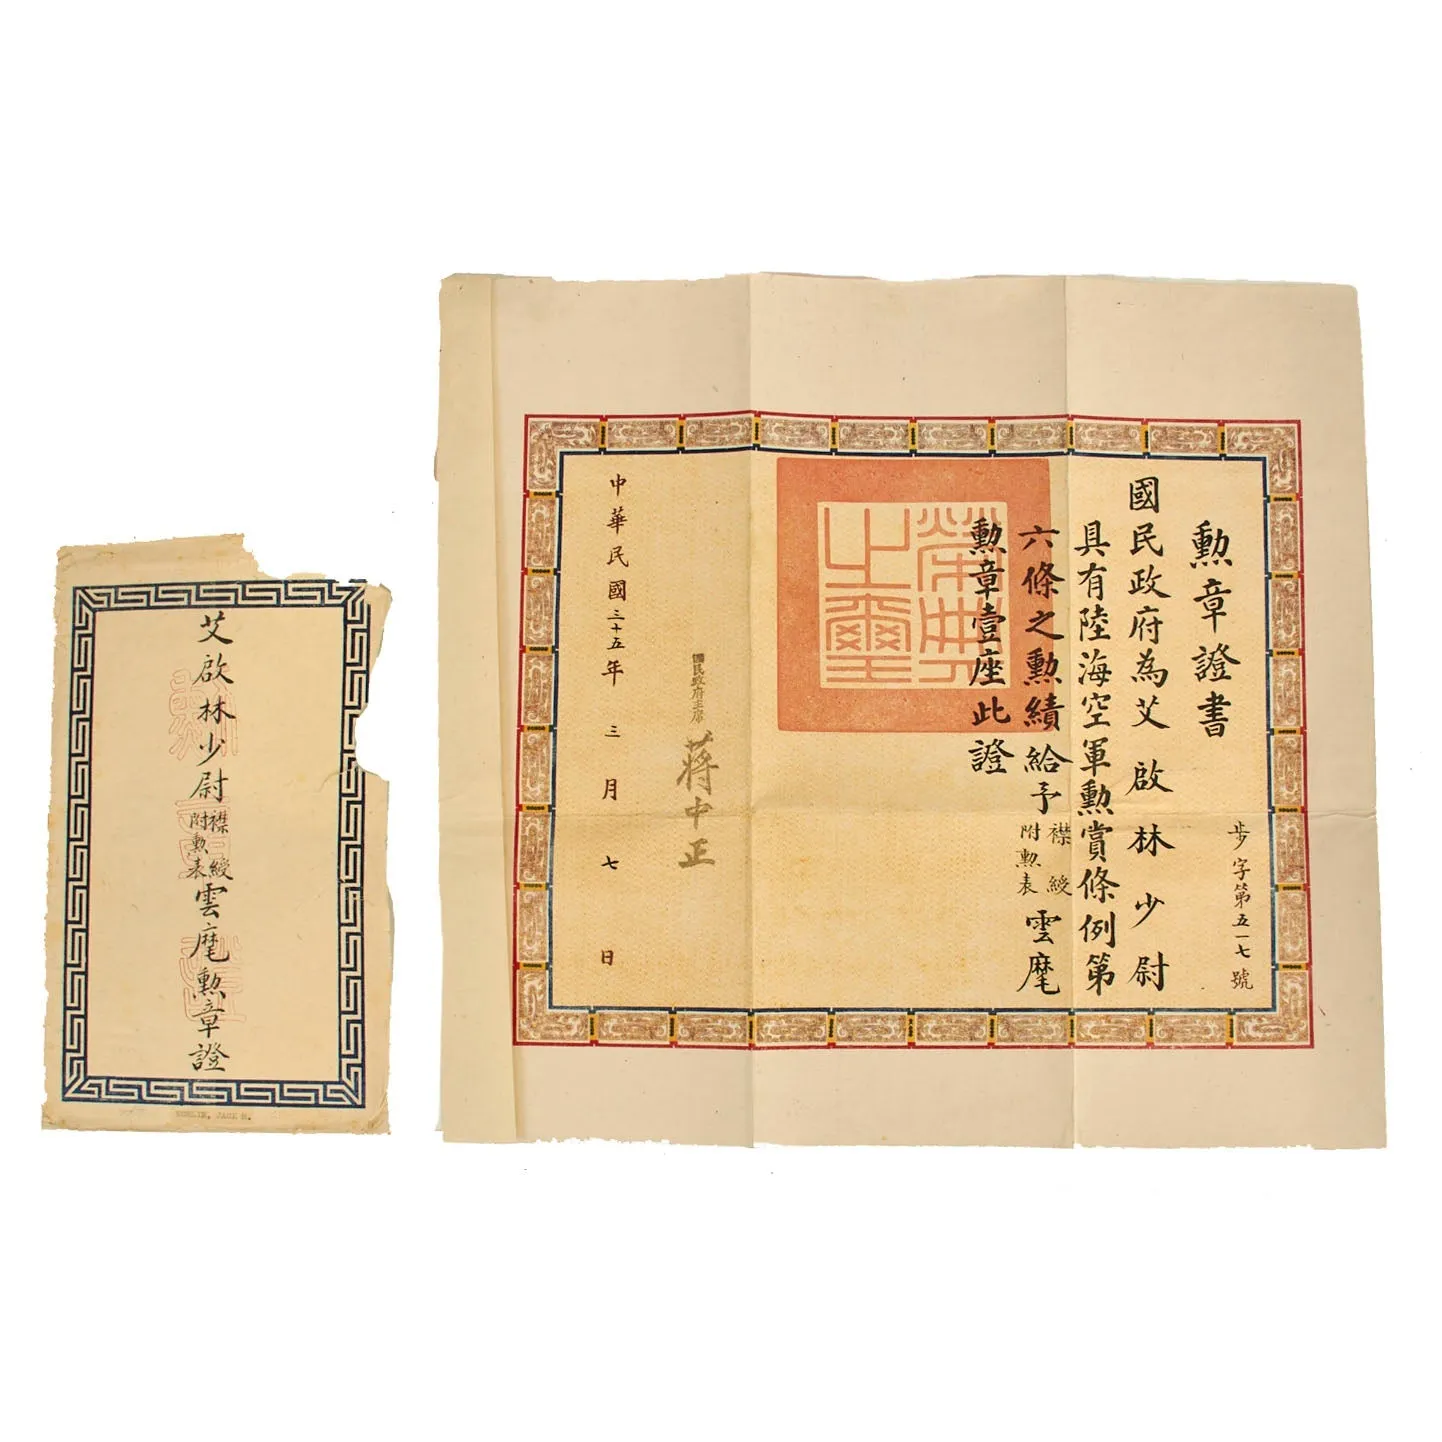 艾啟林少尉襟綬附勳表雲麾勳章證
JACK H.
勳章證書
步字第五一七號
國民政府為艾啟林少尉
具有陸海空軍勳賞條例第
六條之勳績給予襟綬附勳表雲麾
勳章壹座此證
榮典之璽
國民政府主席
蔣中正
中華民國三十五年三月七日